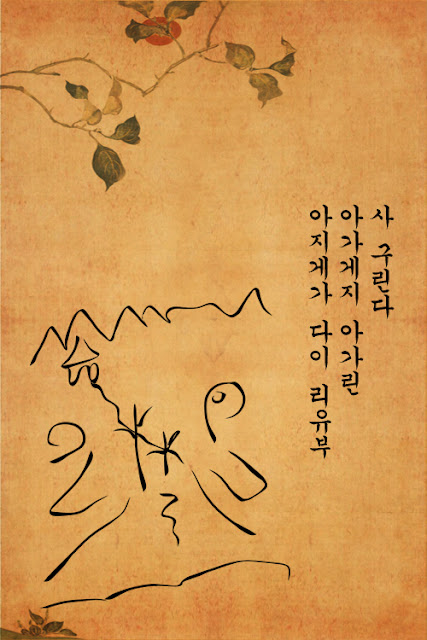 사 구린다
아가게지 아가린
아지게가 다이 리유부